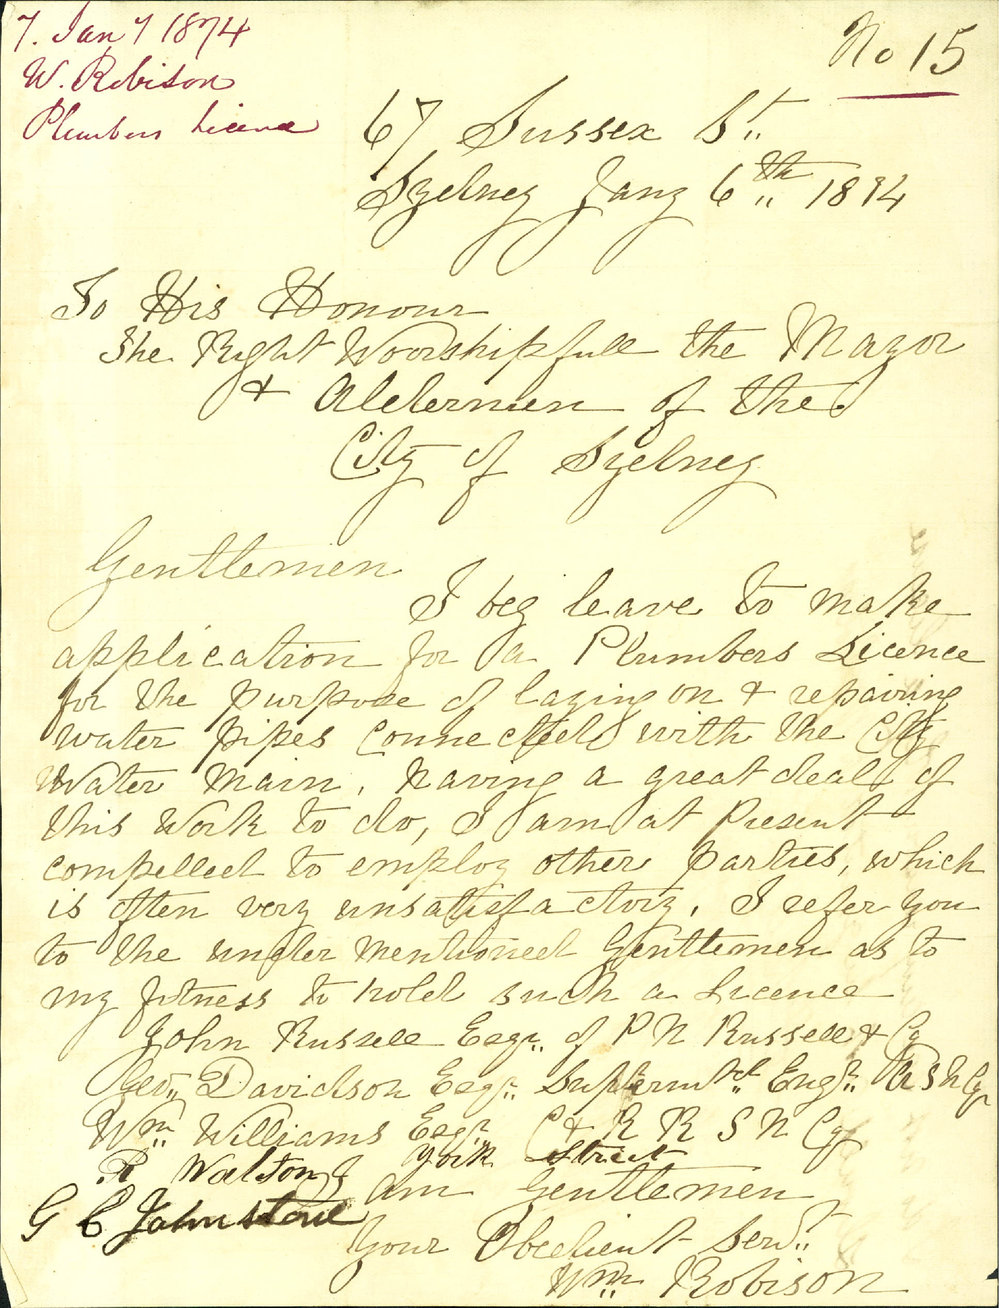 7. Jany 1874
W. Robison
Plumbers Licence
No 15
67 Sussex St.
Sydney Jany 6th 1874
To His Honour
The Right Woorshipfull the Mayor
& Aldermen of the
City of Sydney
Gentlemen
I beg leave to make
application for a Plumbers Licence
for the purpose of laying on & repairing
water pipes connected with the City
Water Main, having a great deal of
this Work to do, I am at Present
compelled to employ other parties, which
is often very unsatisfactory, I refer you
to the under mentioned Gentlemen as to
my fitness to hold such a Licence
John Russell Esqr. of P N Russell & Co
Geo. Davidson Esqr. Superintdt. Engr. A S N Co
Wm. Williams Esqr. C & R R S N Co
R Walton York Street
G C Johnstone
I am Gentlemen
Your Obedient Servt.
Wm. Robison